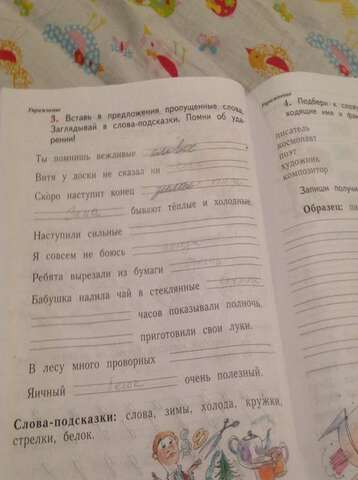 Упражнение
3. Вставь в предложения пропущенные слова.
Заглядывай в слова-подсказки. Помни об уда-
рении!
Ты помнишь вежливые слова
Витя у доски не сказал ни
Скоро наступит конец зимы
бывают тёплые и холодные.
Наступили сильные
Я совсем не боюсь
Ребята вырезали из бумаги
Бабушка налила чай в стеклянные
часов показывали полночь.
приготовили свои луки.
В лесу много проворных
Яичный белок очень полезный.
Слова-подсказки: слова, зимы, холода, кружки,
стрелки, белок.
Упражнение
4. Подбери к
писатель
космонавт
поэт
художник
композитор
Запиши
Образец: